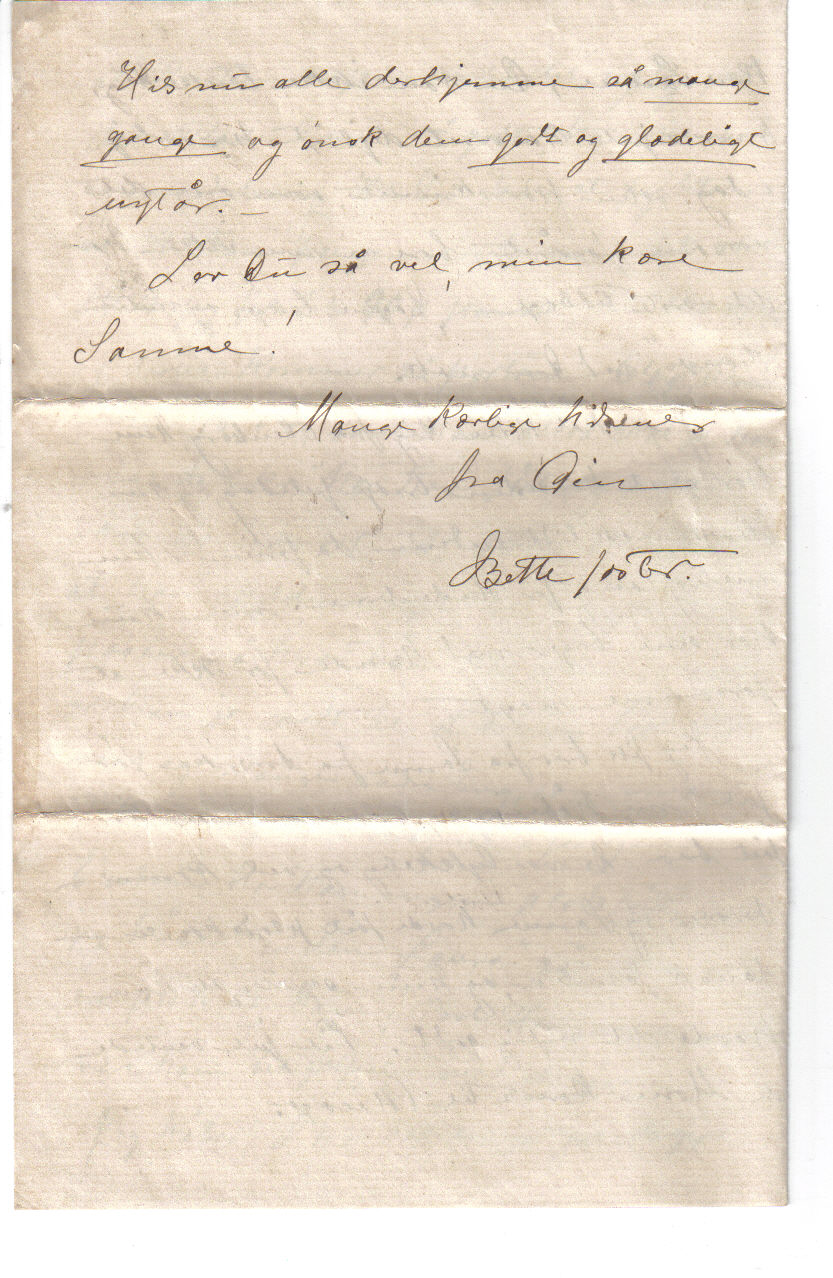 Hils nu alle derhjemme så mange
gange og ønsk dem godt og glædeligt
nytår.
Lev Du så vel, min kære
Samme!
Mange kærlige hilsener
fra Din
Bette